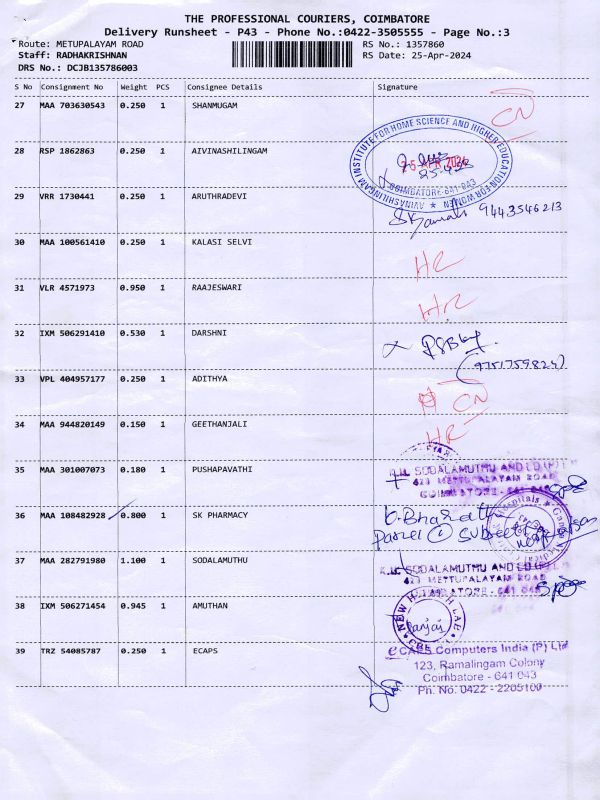 THE PROFESSIONAL COURIERS, COIMBATORE
Delivery Runsheet - P43 - Phone No.:0422-3505555 - Page No.:3
Route: METUPALAYAM ROAD RS No.: 1357860
Staff: RADHAKRISHNAN RS Date: 25-Apr-2024
DRS No.: DCJB135786003
S No Consignment No Weight PCS Consignee Details Signature
27 MAA 703630543 0.250 1 SHANMUGAM CN
28 RSP 1862863 0.250 1 AIVINASHILINGAM
AVINASHILINGAM INSTITUTE FOR HOME SCIENCE AND HIGHER EDUCATION FOR WOMEN
25 APR 2024
COIMBATORE-641 043
29 VRR 1730441 0.250 1 ARUTHRADEVI
9443546213
30 MAA 100561410 0.250 1 KALASI SELVI HR
31 VLR 4571973 0.950 1 RAAJESWARI HR
32 IXM 506291410 0.530 1 DARSHNI
(9751759824)
33 VPL 404957177 0.250 1 ADITHYA CN
34 MAA 944820149 0.150 1 GEETHANJALI HR
35 MAA 301007073 0.180 1 PUSHAPAVATHI
SODALAMUTHU AND CO
METTUPALAYAM ROAD
COIMBATORE - 641
36 MAA 108482928 0.800 1 SK PHARMACY
K. Bharath
Parcel
37 MAA 282791980 1.100 1 SODALAMUTHU
SODALAMUTHU AND CO
METTUPALAYAM ROAD
38 IXM 506271454 0.945 1 AMUTHAN
39 TRZ 54085787 0.250 1 ECAPS
eCAPS Computers India (P) Ltd
123, Ramalingam Colony
Coimbatore - 641 043
Ph. No. 0422 - 2205100